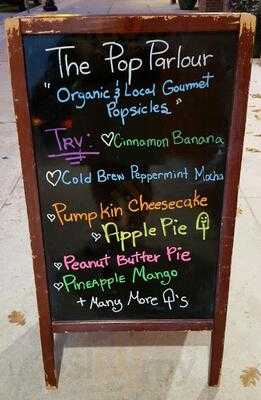 The Pop Parlour
"Organic & Local Gourmet
Popsicles"
TRY: ♡Cinnamon Banana
♡Cold Brew Peppermint Mocha
♡Pumpkin Cheesecake
♡Apple Pie
♡Peanut Butter Pie
♡Pineapple Mango
+ Many More 's